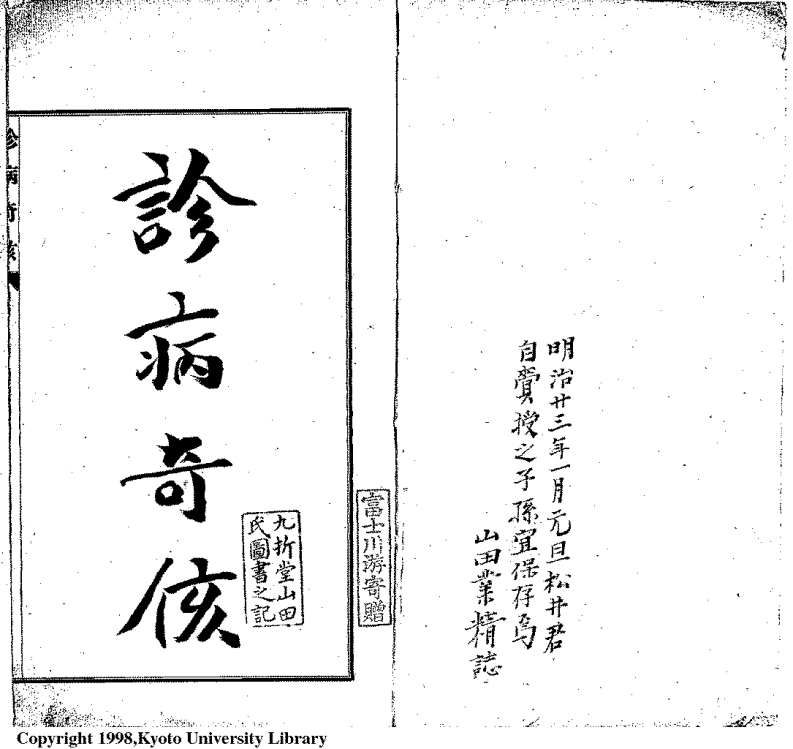 明治廿三年一月元旦松井君
自賷授之子孫宜保存焉
山田業精誌
富士川游寄贈
診病奇侅
九折堂山田
氏圖書之記
診病奇侅
Copyright 1998,Kyoto University Library